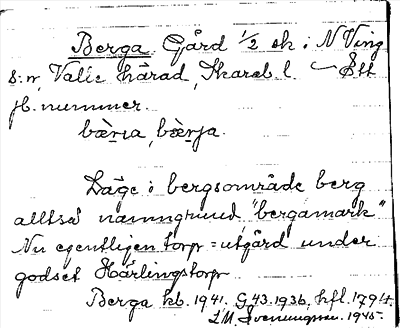 Berga Gård 1/2 sk i N Ving
s:n, Valle härad, Skarab. l. – Ett
jb. nummer.
bæ̀rıa, bæ̀rja.
Läge i bergsområde berg
alltså namngrund "bergamark"
Nu egentligen torp = utgård under
godset Härlingstorp
Berga kb. 1941. G43. 1936, hfl. 1794.
L M Svenungsson. 1945.